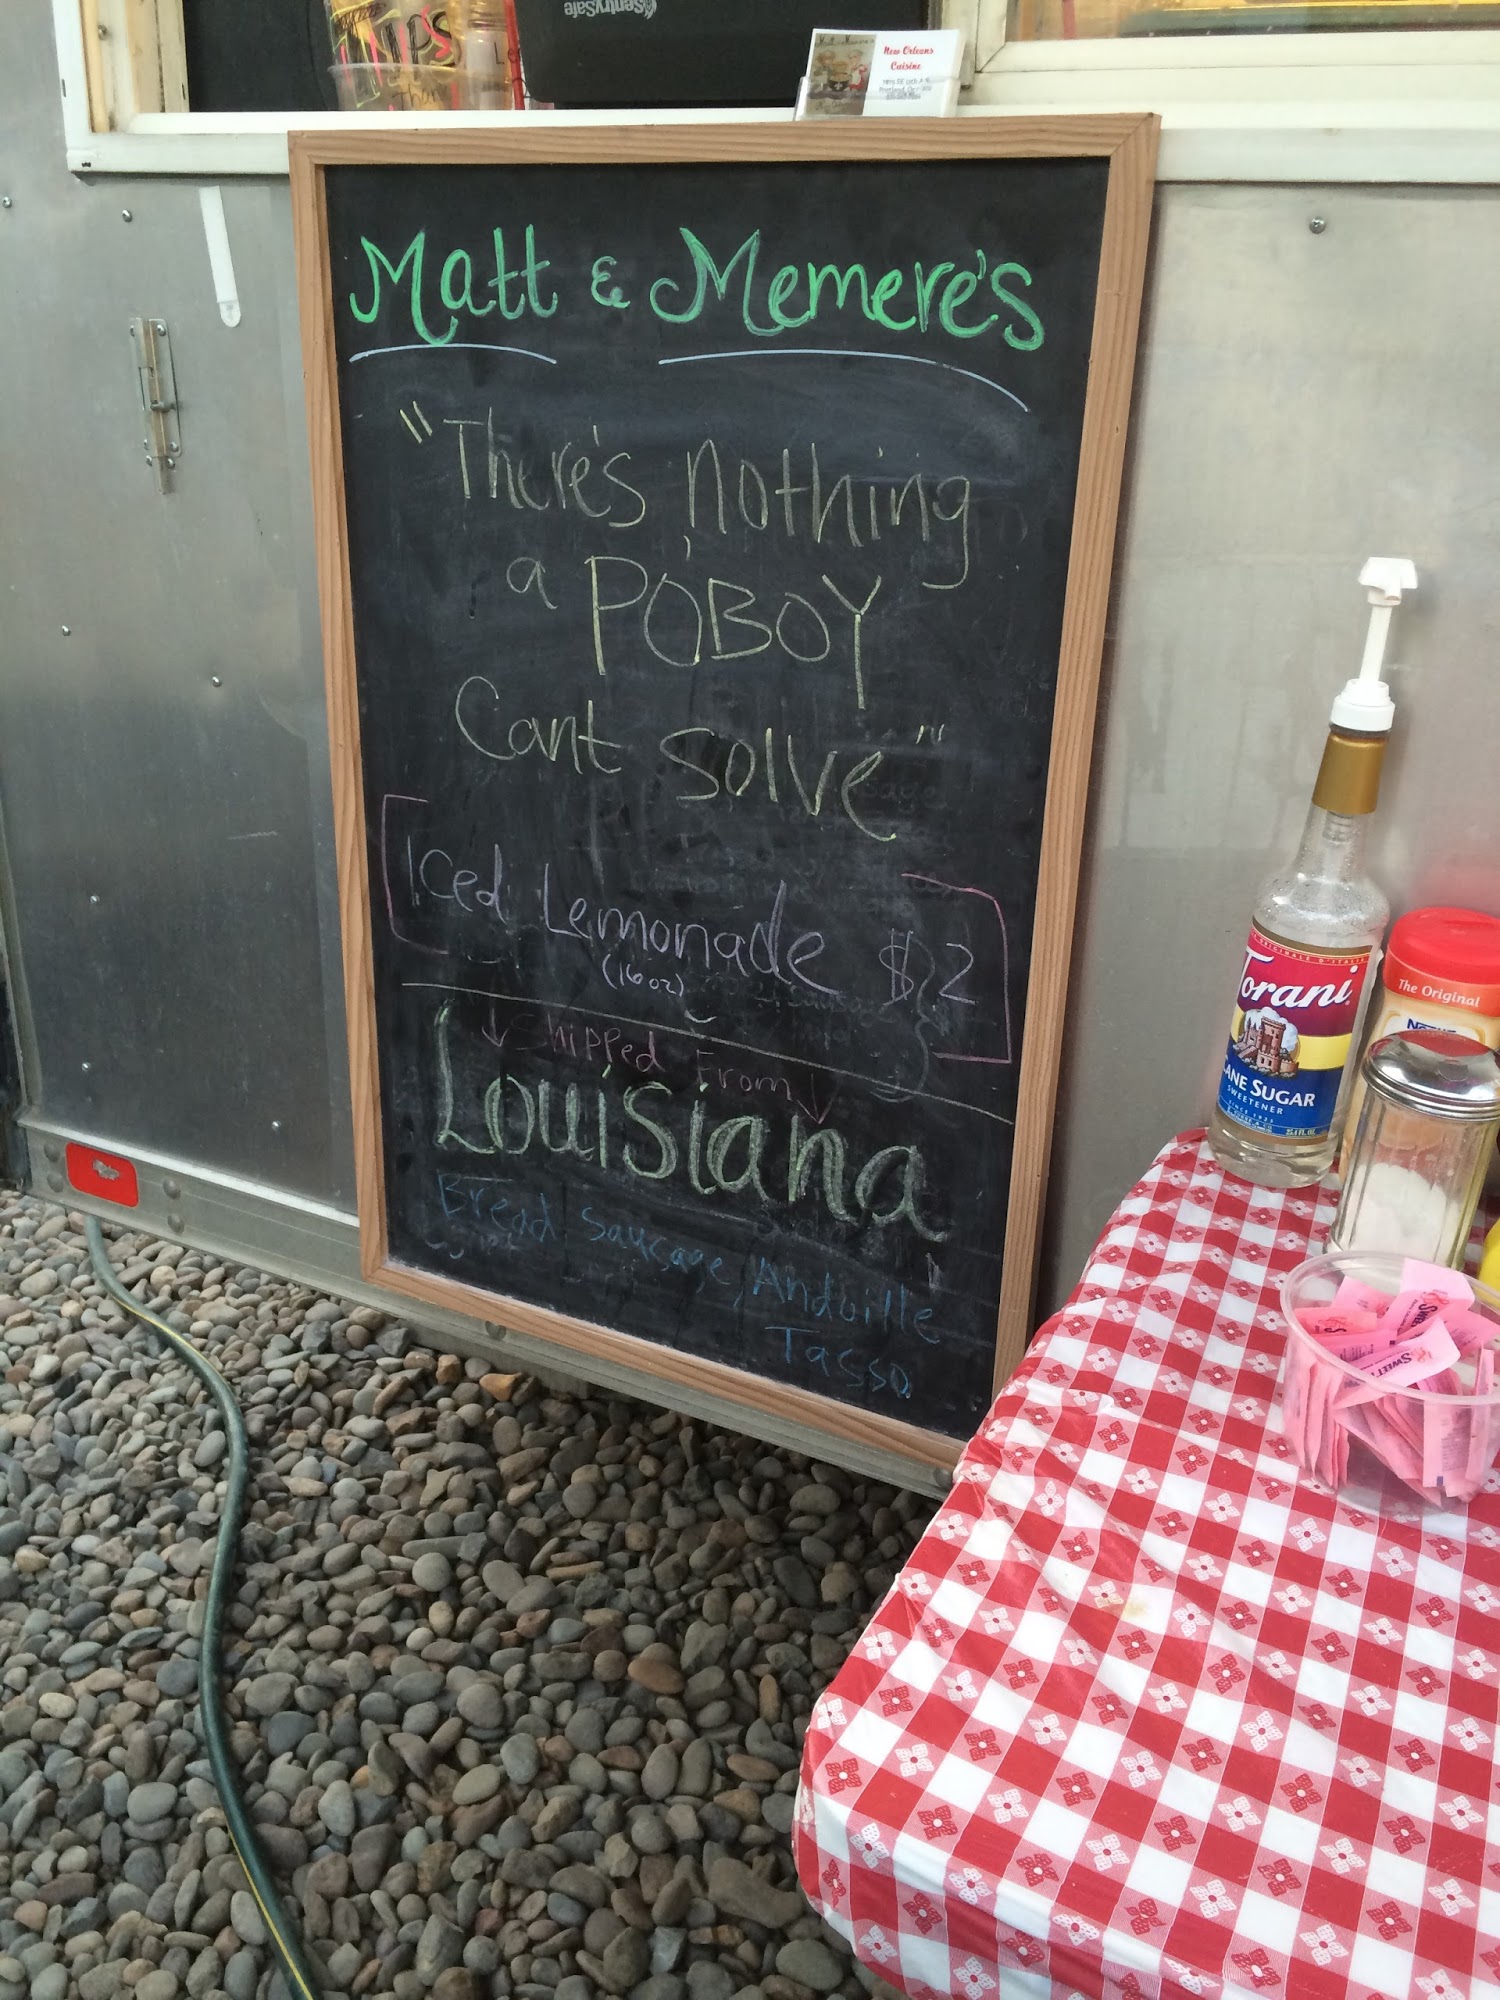 SentrySafe
TIPS
New Orleans
Cuisine
Matt & Memere's
"There's nothing
a PO'BOY
Cant Solve"
Iced Lemonade $2
(16oz)
↓ Shipped From ↓
Louisiana
Bread Saucage, Andoille
Tasso
Torani
CANE SUGAR
SWEETENER
The Original